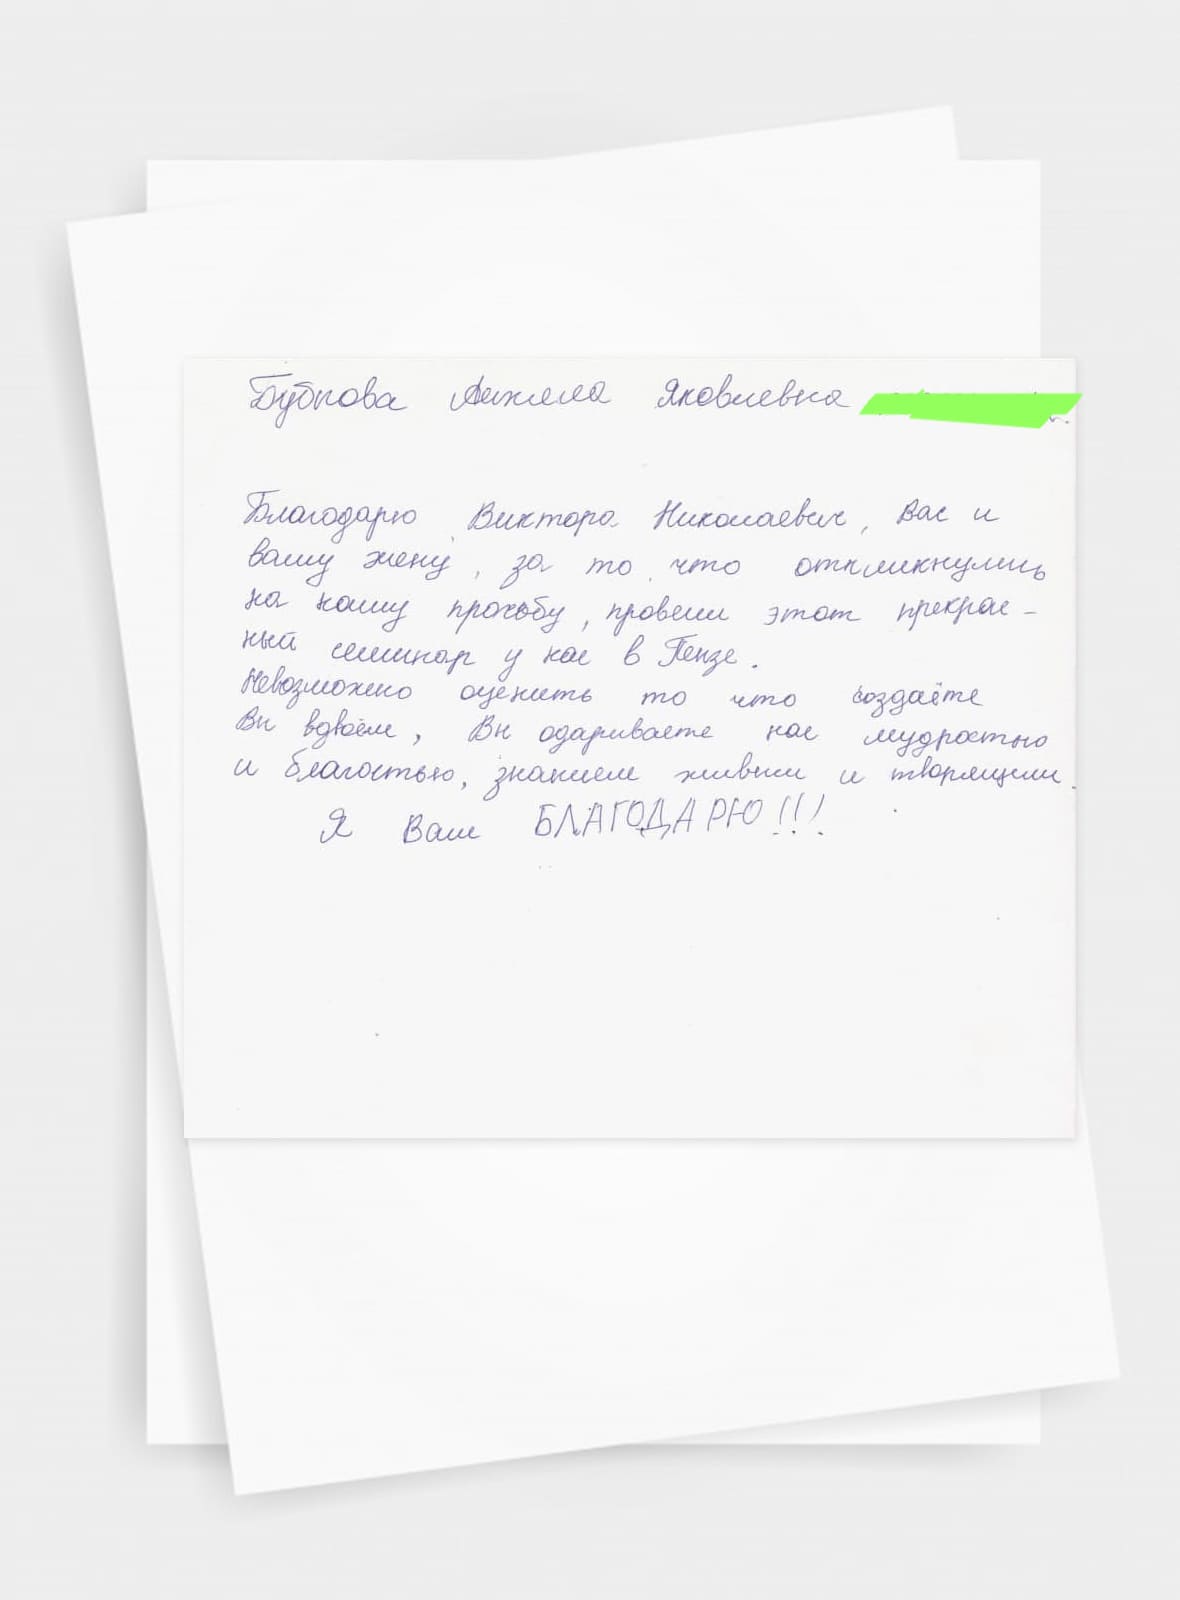 Бубнова Анжела Яковлевна
Благодарю Виктора Николаевич, Вас и
вашу жену, за то что откликнулись
на нашу прозьбу, провели этот прекрас-
ный семинар у нас в Пензе.
Невозможно оценить то что создаёте
Вы вдвоём, Вы одариваете нас мудростью
и благостью, знанием живым и творящим.
Я Вам БЛАГОДАРЮ!!!